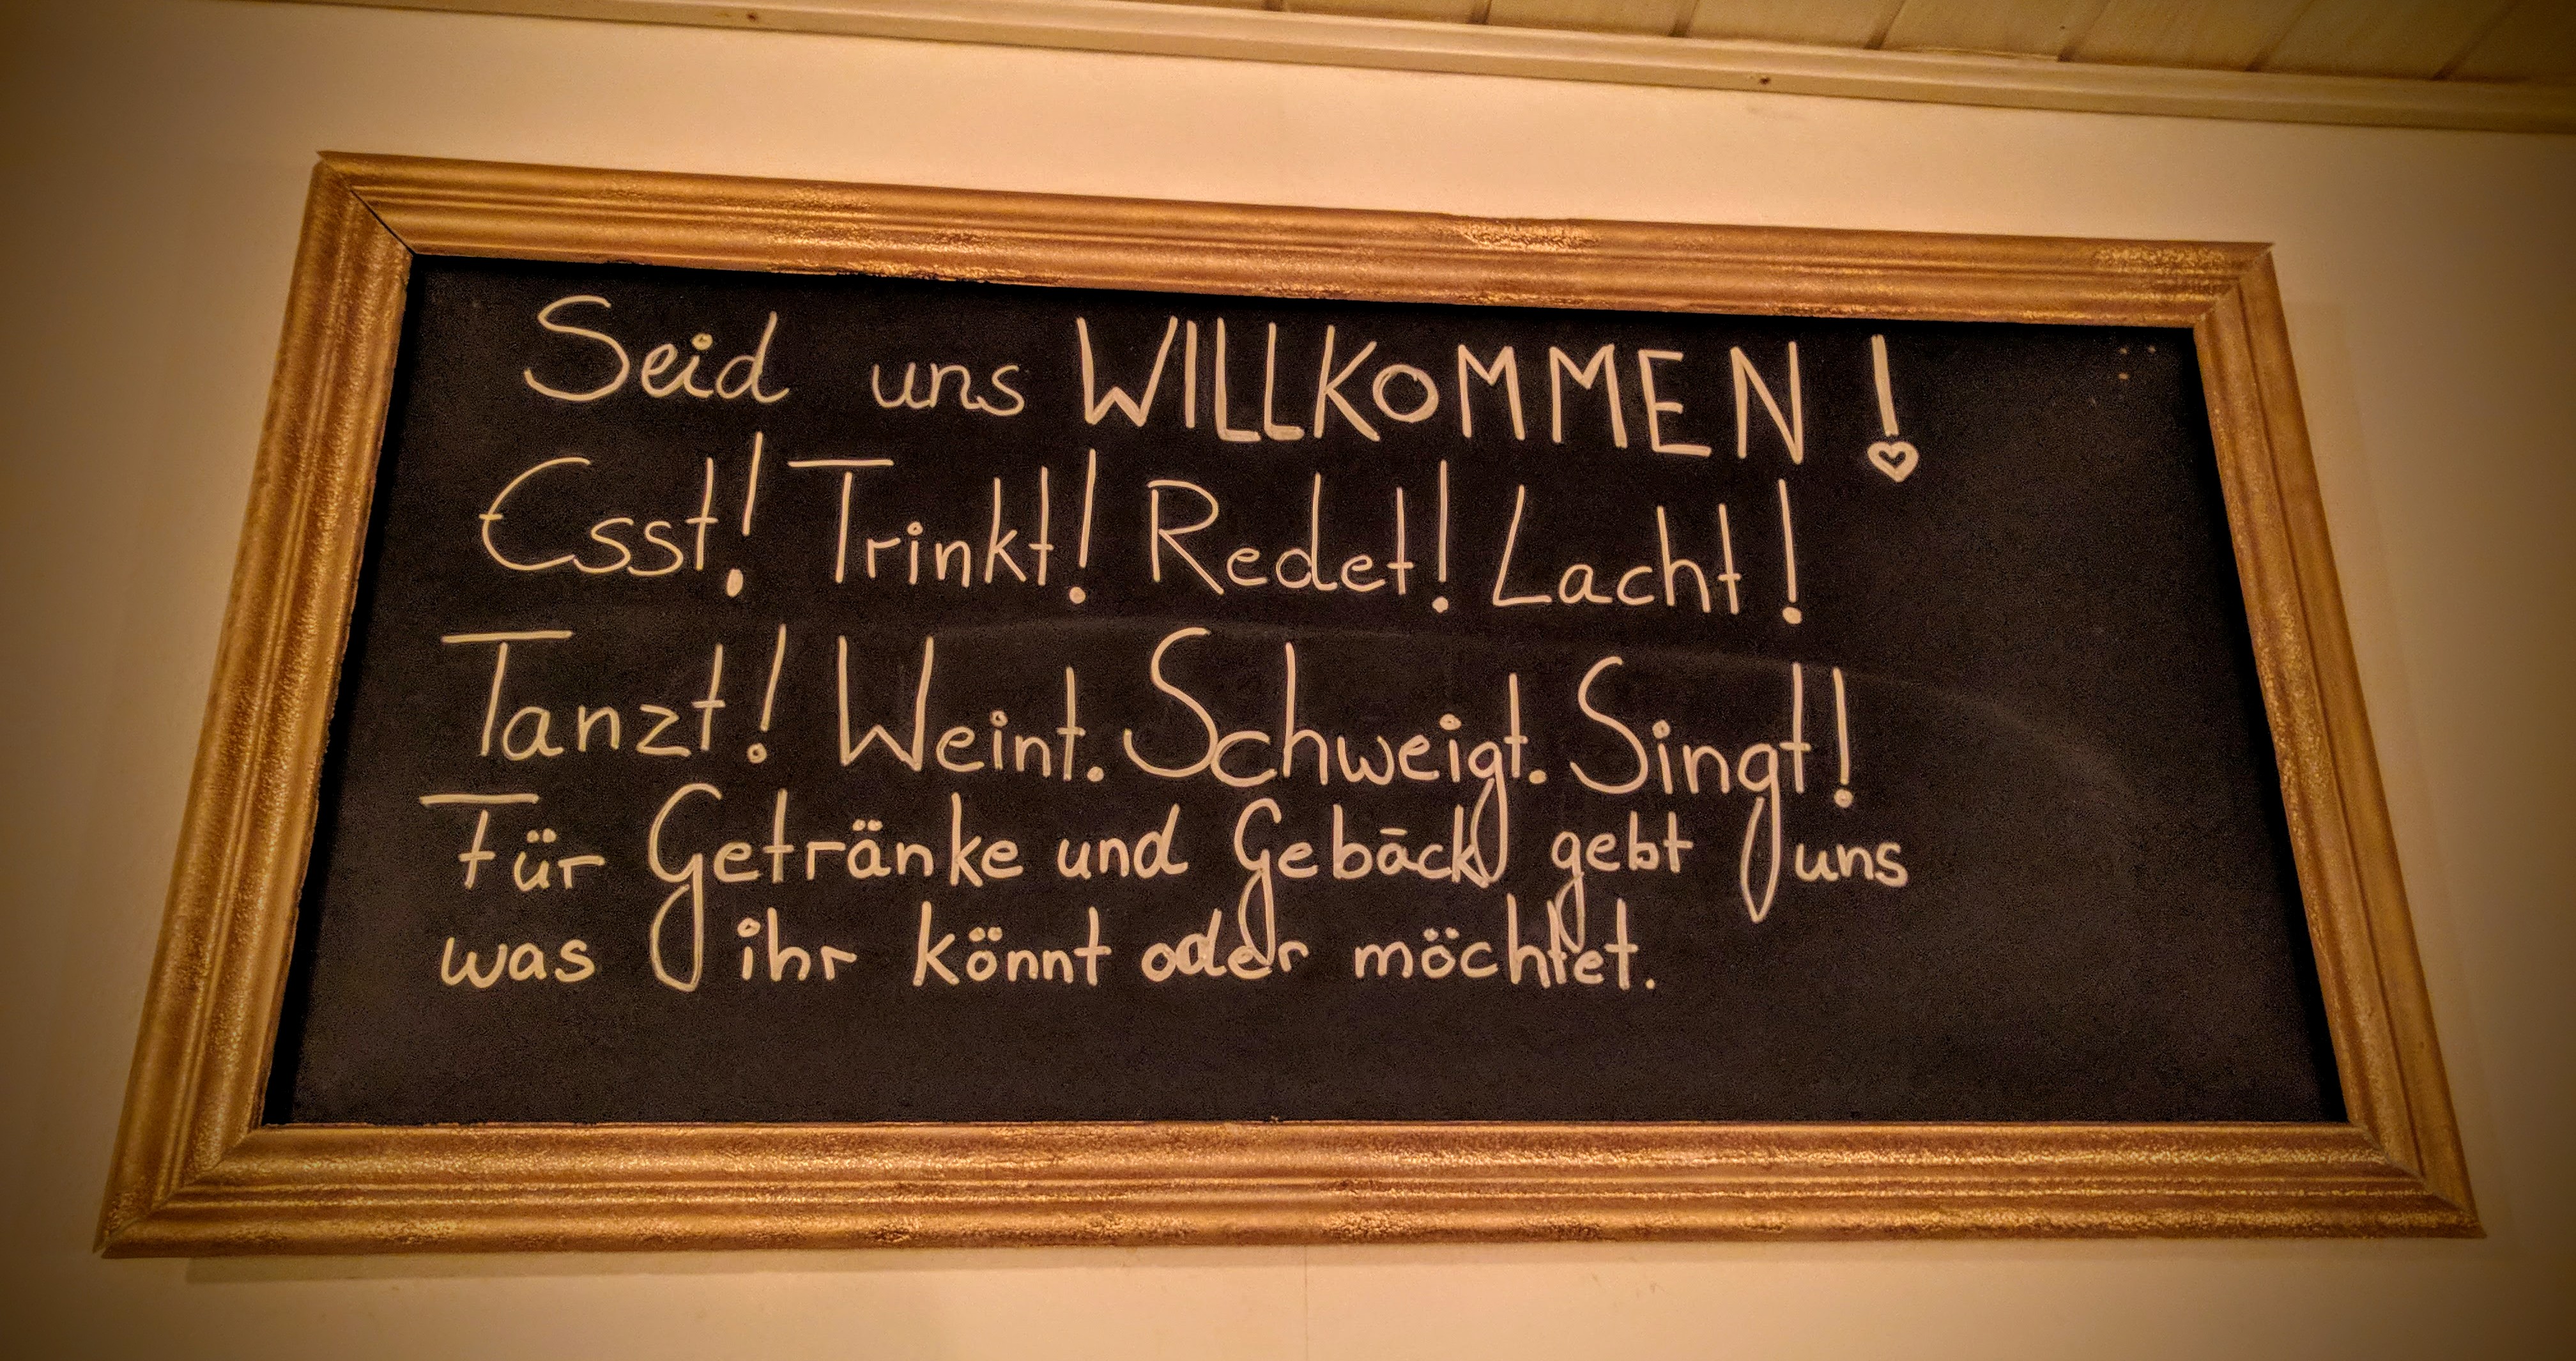 Seid uns WILLKOMMEN!
Esst! Trinkt! Redet! Lacht!
Tanzt! Weint. Schweigt. Singt!
Für Getränke und Gebäck gebt uns
was ihr könnt oder möchtet.